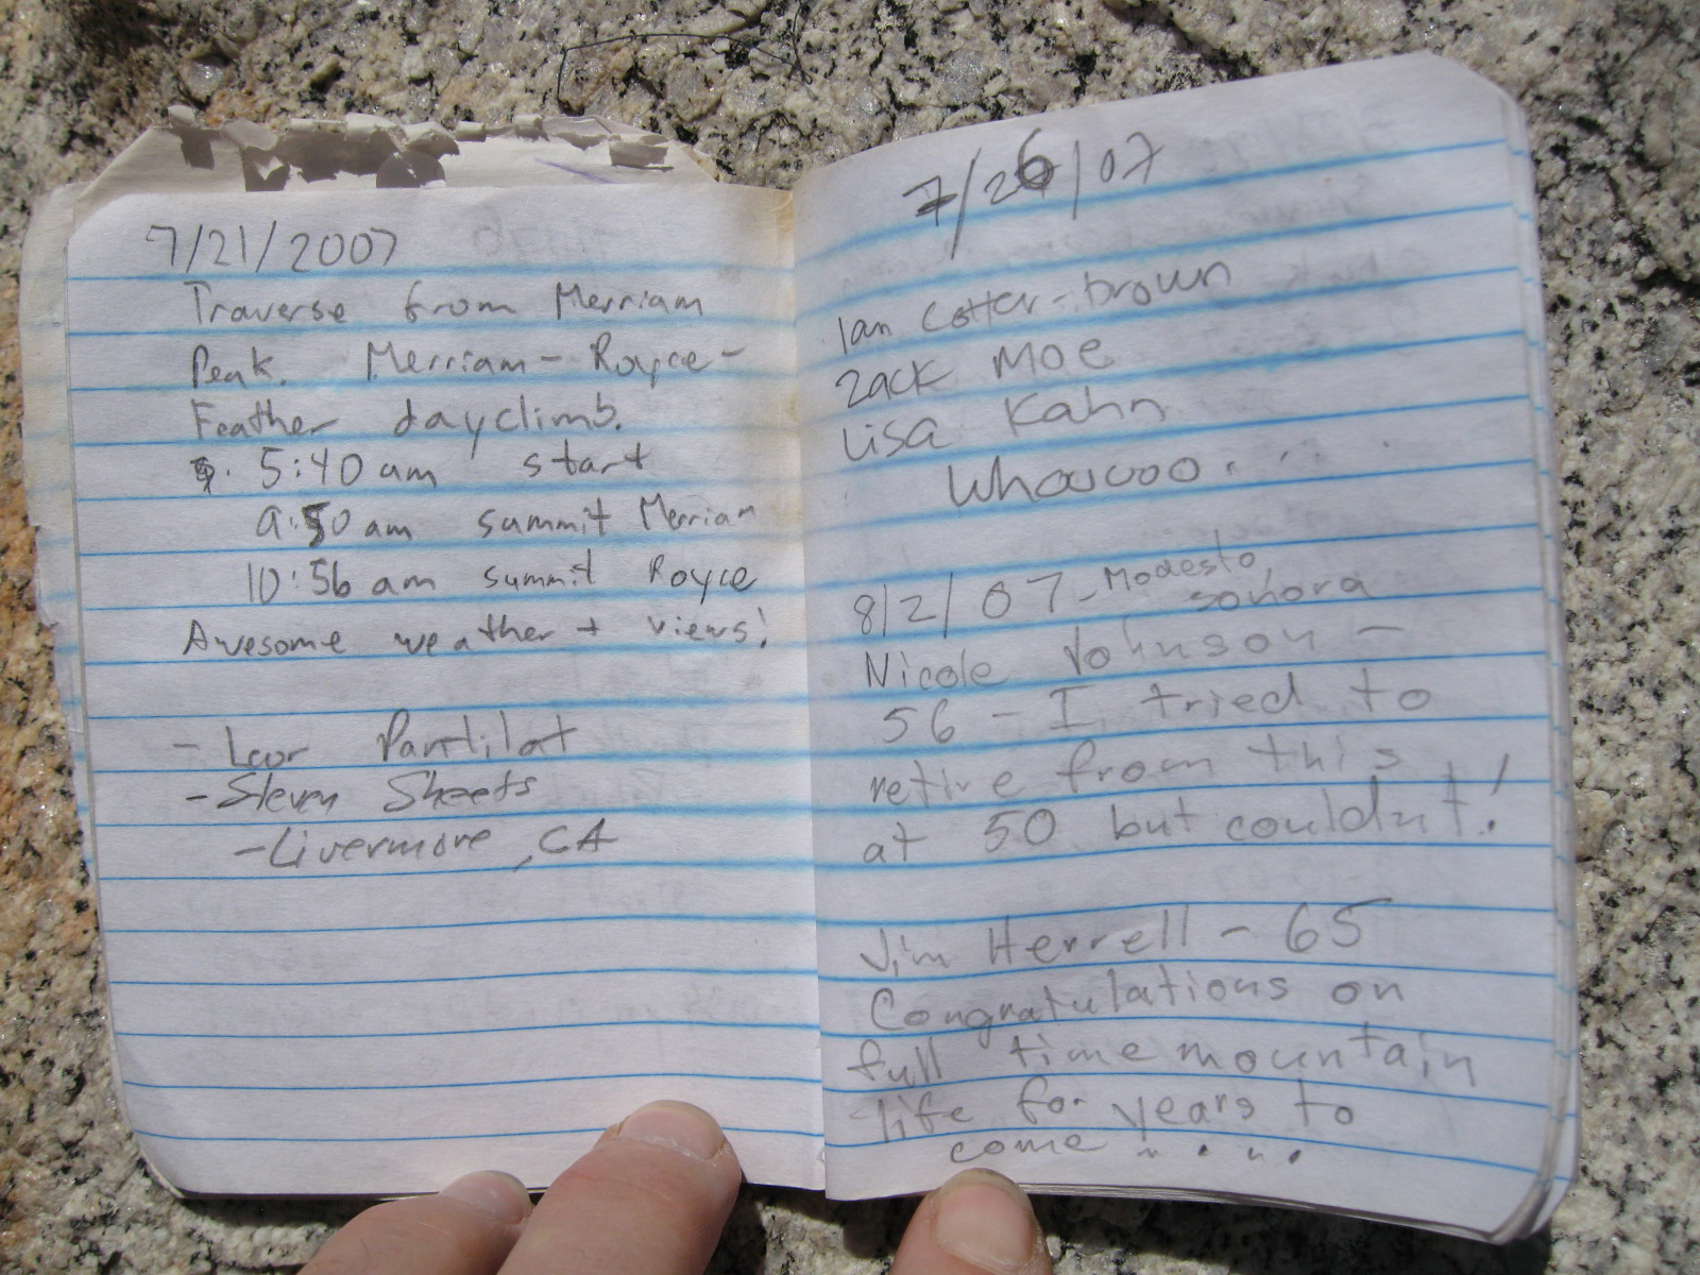 7/21/2007
Traverse from Merriam
Peak. Merriam - Royce -
Feather dayclimb.
5:40 am start
9:50 am summit Merriam
10:56 am summit Royce
Awesome weather + views!
- Leor Pantilat
- Steven Sheets
- Livermore, CA
7/26/07
Ian Cotter-brown
Zack Moe
Lisa Kahn
Whoowoo....
8/2/07 - Modesto,
sonora
Nicole Johnson -
56 - I tried to
retire from this
at 50 but couldnt!
Jim Herrell - 65
Congratulations on
full time mountain
life for years to
come ....